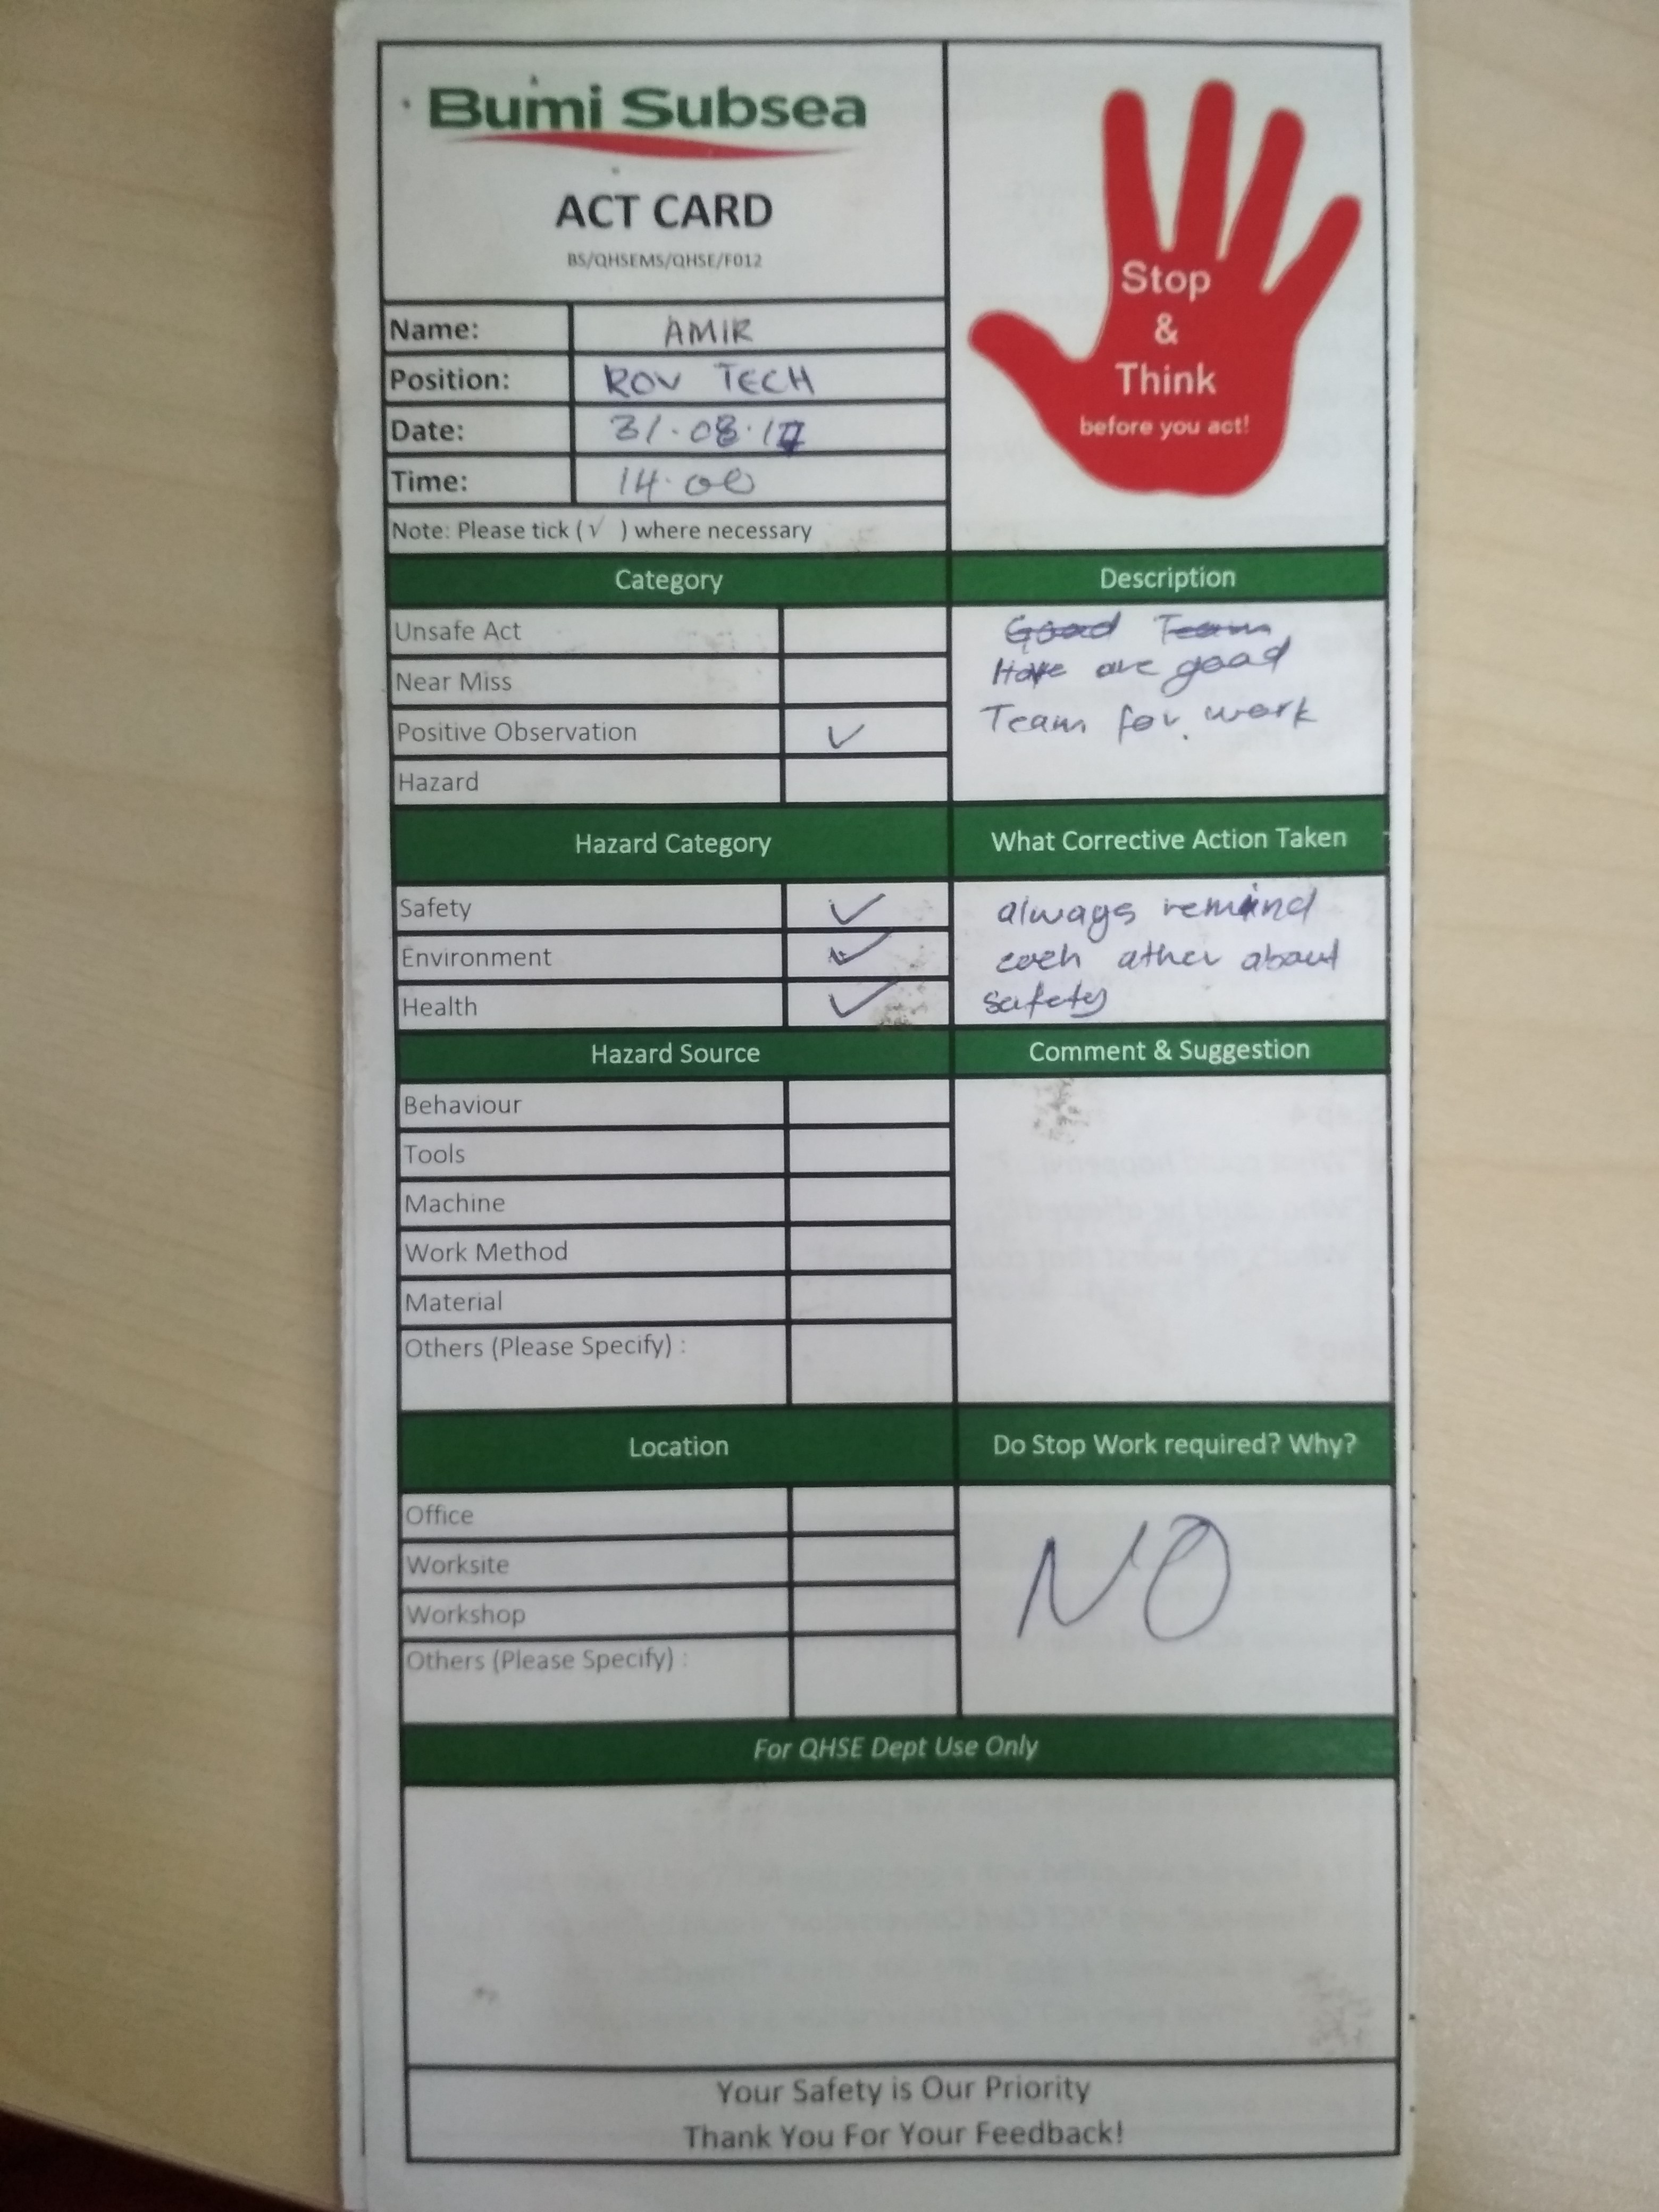 Bumi Subsea
ACT CARD
BS/QHSEMS/QHSE/F012
Stop
&
Think
before you act!
Name: AMIR
Position: ROV TECH
Date: 31.08.17
Time: 14.00
Note: Please tick (√ ) where necessary
Category
Unsafe Act
Near Miss
Positive Observation ✓
Hazard
Description
Good Team
Have are good
Team for work
Hazard Category
Safety ✓
Environment ✓
Health ✓
What Corrective Action Taken
always remind
each ather about
safety
Hazard Source
Behaviour
Tools
Machine
Work Method
Material
Others (Please Specify) :
Comment & Suggestion
Location
Office
Worksite
Workshop
Others (Please Specify) :
Do Stop Work required? Why?
NO
For QHSE Dept Use Only
Your Safety is Our Priority
Thank You For Your Feedback!